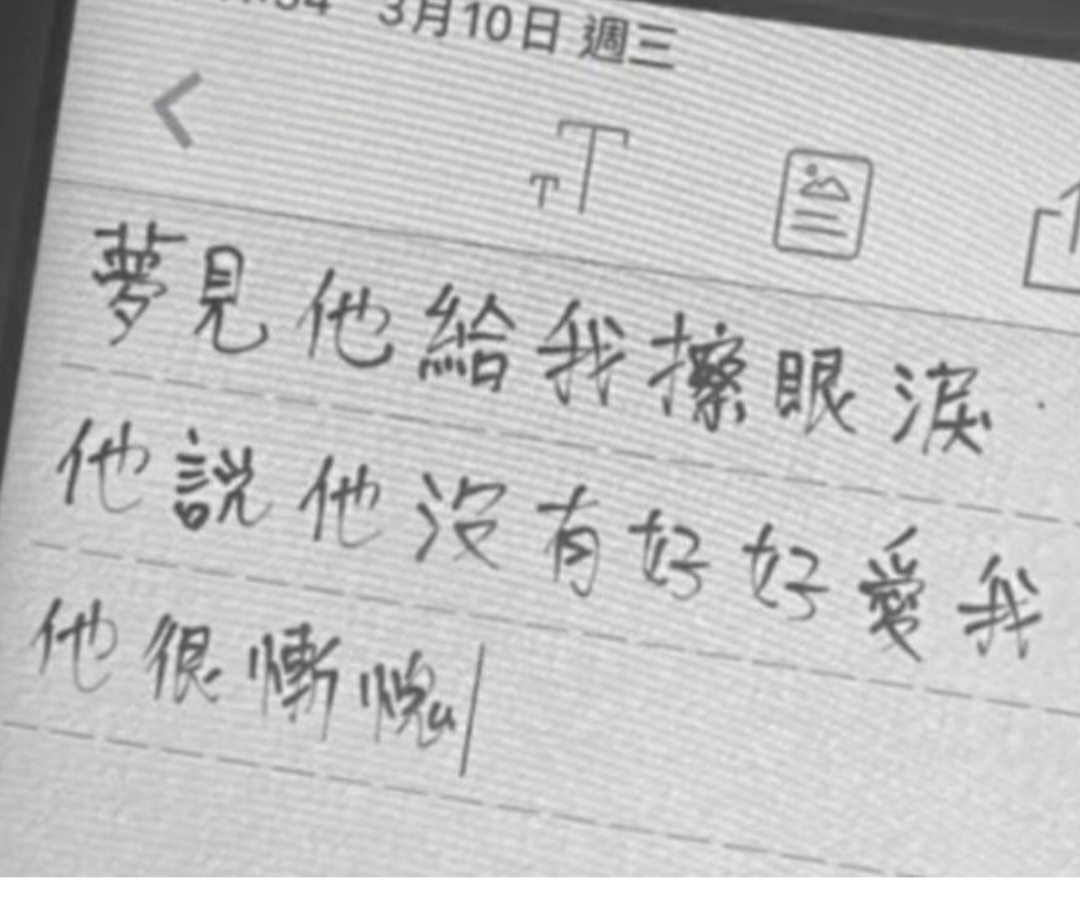 3月10日 週三
夢見他給我擦眼淚
他說他沒有好好愛我
他很慚愧